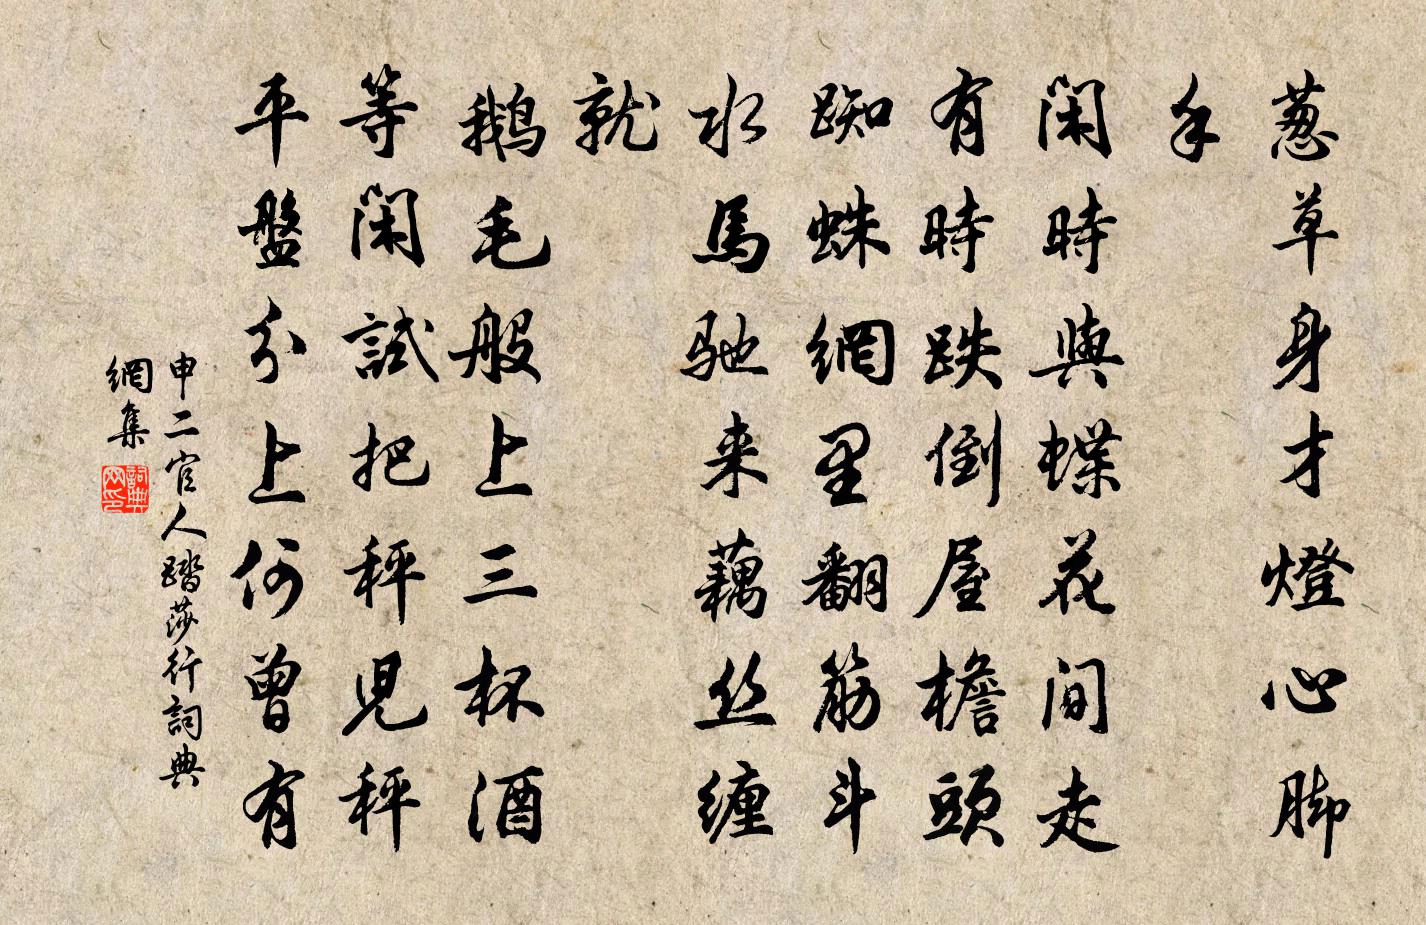 葱草身才燈心脚
手
閑時與蝶花間走
有時跌倒屋檐頭
蜘蛛網里翻筋斗
水馬馳来藕丝缠
就
鵝毛般上三杯酒
等閑試把秤児秤
平盤分上何曾有
申二官人踏莎行詞典
網集
詞典网印